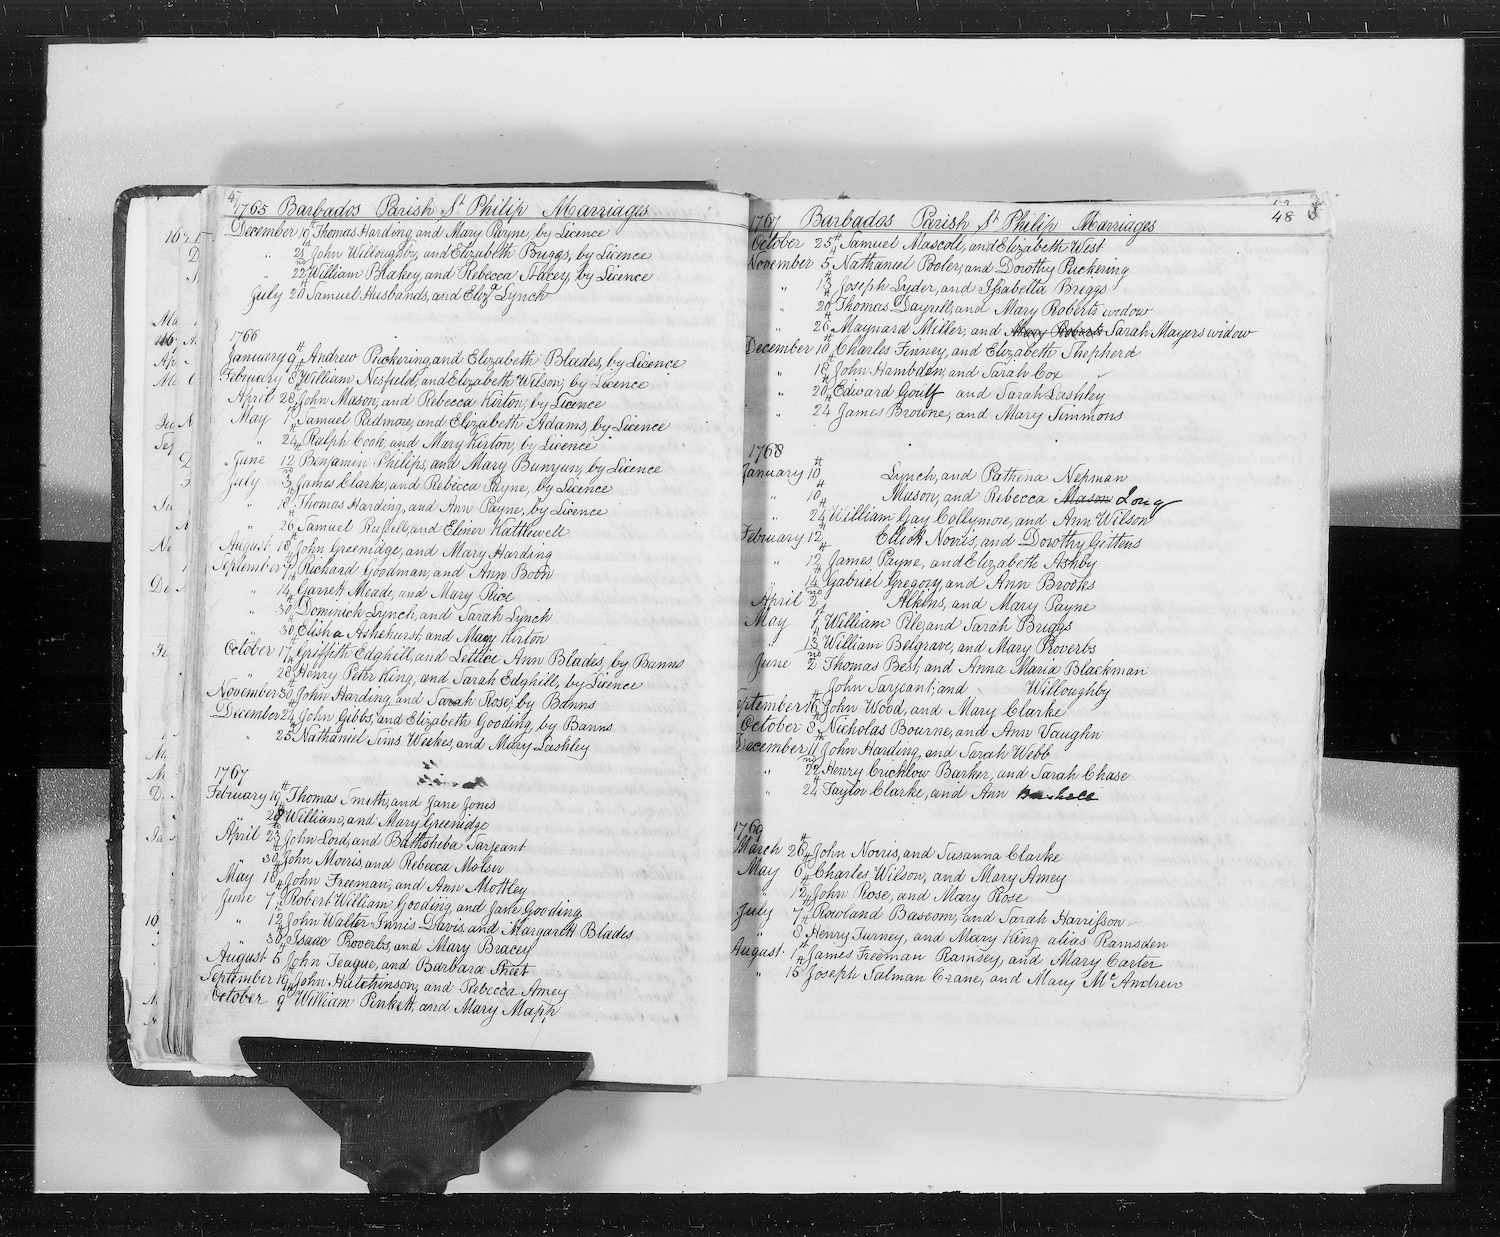 47
1765 Barbados Parish St Philip Marriages
December 19th Thomas Harding, and Mary Payne, by Licence
" 21st John Willoughby, and Elizabeth Briggs, by Licence
" 22nd William Blakey, and Rebecca Stacey, by Licence
July 20th Samuel Husbands, and Eliza Lynch
1766
January 9th Andrew Puckering, and Elizabeth Blades, by Licence
February 8th William Nesfield, and Elizabeth Wilson, by Licence
April 28 John Mason, and Rebecca Kirton, by Licence
May 1st Samuel Padmore, and Elizabeth Adams, by Licence
" 24 Ralph Cook, and Mary Kirton, by Licence
June 12th Benjamin Philips, and Mary Bunyun, by Licence
July 3rd James Clarke, and Rebecca Payne, by Licence
" Thomas Harding, and Ann Payne, by Licence
" 26th Samuel Russell, and Eliner Kattlewell
August 18th John Greenidge, and Mary Harding
September Richard Goodman, and Ann Boon
" 14th Garrett Meade, and Mary Rice
" 30th Dominick Lynch, and Sarah Lynch
" 30th Elisha Ashehurst, and Mary Kirton
October 17th Griffith Edghill, and Lettice Ann Blades, by Banns
" 28th Henry Peter King, and Sarah Edghill, by Licence
November 30th John Harding and Sarah Rose, by Banns
December 24th John Gibbs, and Elizabeth Gooding, by Banns
" 25 Nathaniel Sims Weekes, and Mary Lashley
1767
February 19th Thomas Smith, and Jane Jones
" 28 William, and Mary Greenidge
April 23 John Lord, and Bathsheba Sarjeant
" 30th John Morris, and Rebecca
May 10th John Freeman, and Ann Mottley
June 7th Robert William Gooding, and Jane Gooding
" 12th John Walter Innis Davis and Margarett Blades
30th Isaac Proverbs, and Mary Bracey
August 5th John Teague, and Barbara Street
September 19th John Hutchinson, and Rebecca Amey
October 9th William Pinkett, and Mary Mapp
48
1767 Barbados Parish St Philip Marriages
October 25th Samuel Mascoll, and Elizabeth West
November 5th Nathaniel Pooler, and Dorothy Puckering
" 13th Joseph Lyder, and Issabella Briggs
" 20th Thomas Dayrell, and Mary Roberts widow
" 26th Maynard Miller, and Mary Roberts Sarah Mayers widow
December 10th Charles Finney, and Elizabeth Shepherd
" 18th John Hambden, and Sarah Cox
" 20th Edward Goulf and Sarah Lashley
" 24 James Browne, and Mary Simmons
1768
January 10th Lynch, and Pathena Nepman
" 10th Mason, and Rebecca Mason Long
" 24th William Gay Collymore, and Ann Wilson
February 12th Ellick Norris, and Dorothy Gittens
" 12th James Payne, and Elizabeth Ashby
" 14th Gabriel Gregory, and Ann Brooks
April 2nd Atkins, and Mary Payne
May 1st William Pile, and Sarah Briggs
" 13th William Belgrave, and Mary Proverbs
June 2nd Thomas Best, and Anna Maria Blackman
John Sarjeant, and Willoughby
September 16th John Wood, and Mary Clarke
October 8th Nicholas Bourne, and Ann Vaughn
December 11th John Harding, and Sarah Webb
" 22nd Henry Crichlow Barker, and Sarah Chase
" 24th Taylor Clarke, and Ann
1769
March 26th John Norris, and Susanna Clarke
May 6th Charles Wilson, and Mary Amey
" 12th John Rose, and Mary Rose
July 7th Rowland Bascom, and Sarah Harrisson
" 8th Henry Turney, and Mary King alias Ramsden
August 1st James Freeman Ramsey, and Mary Carter
" 15th Joseph Salman Crane, and Mary McAndrew